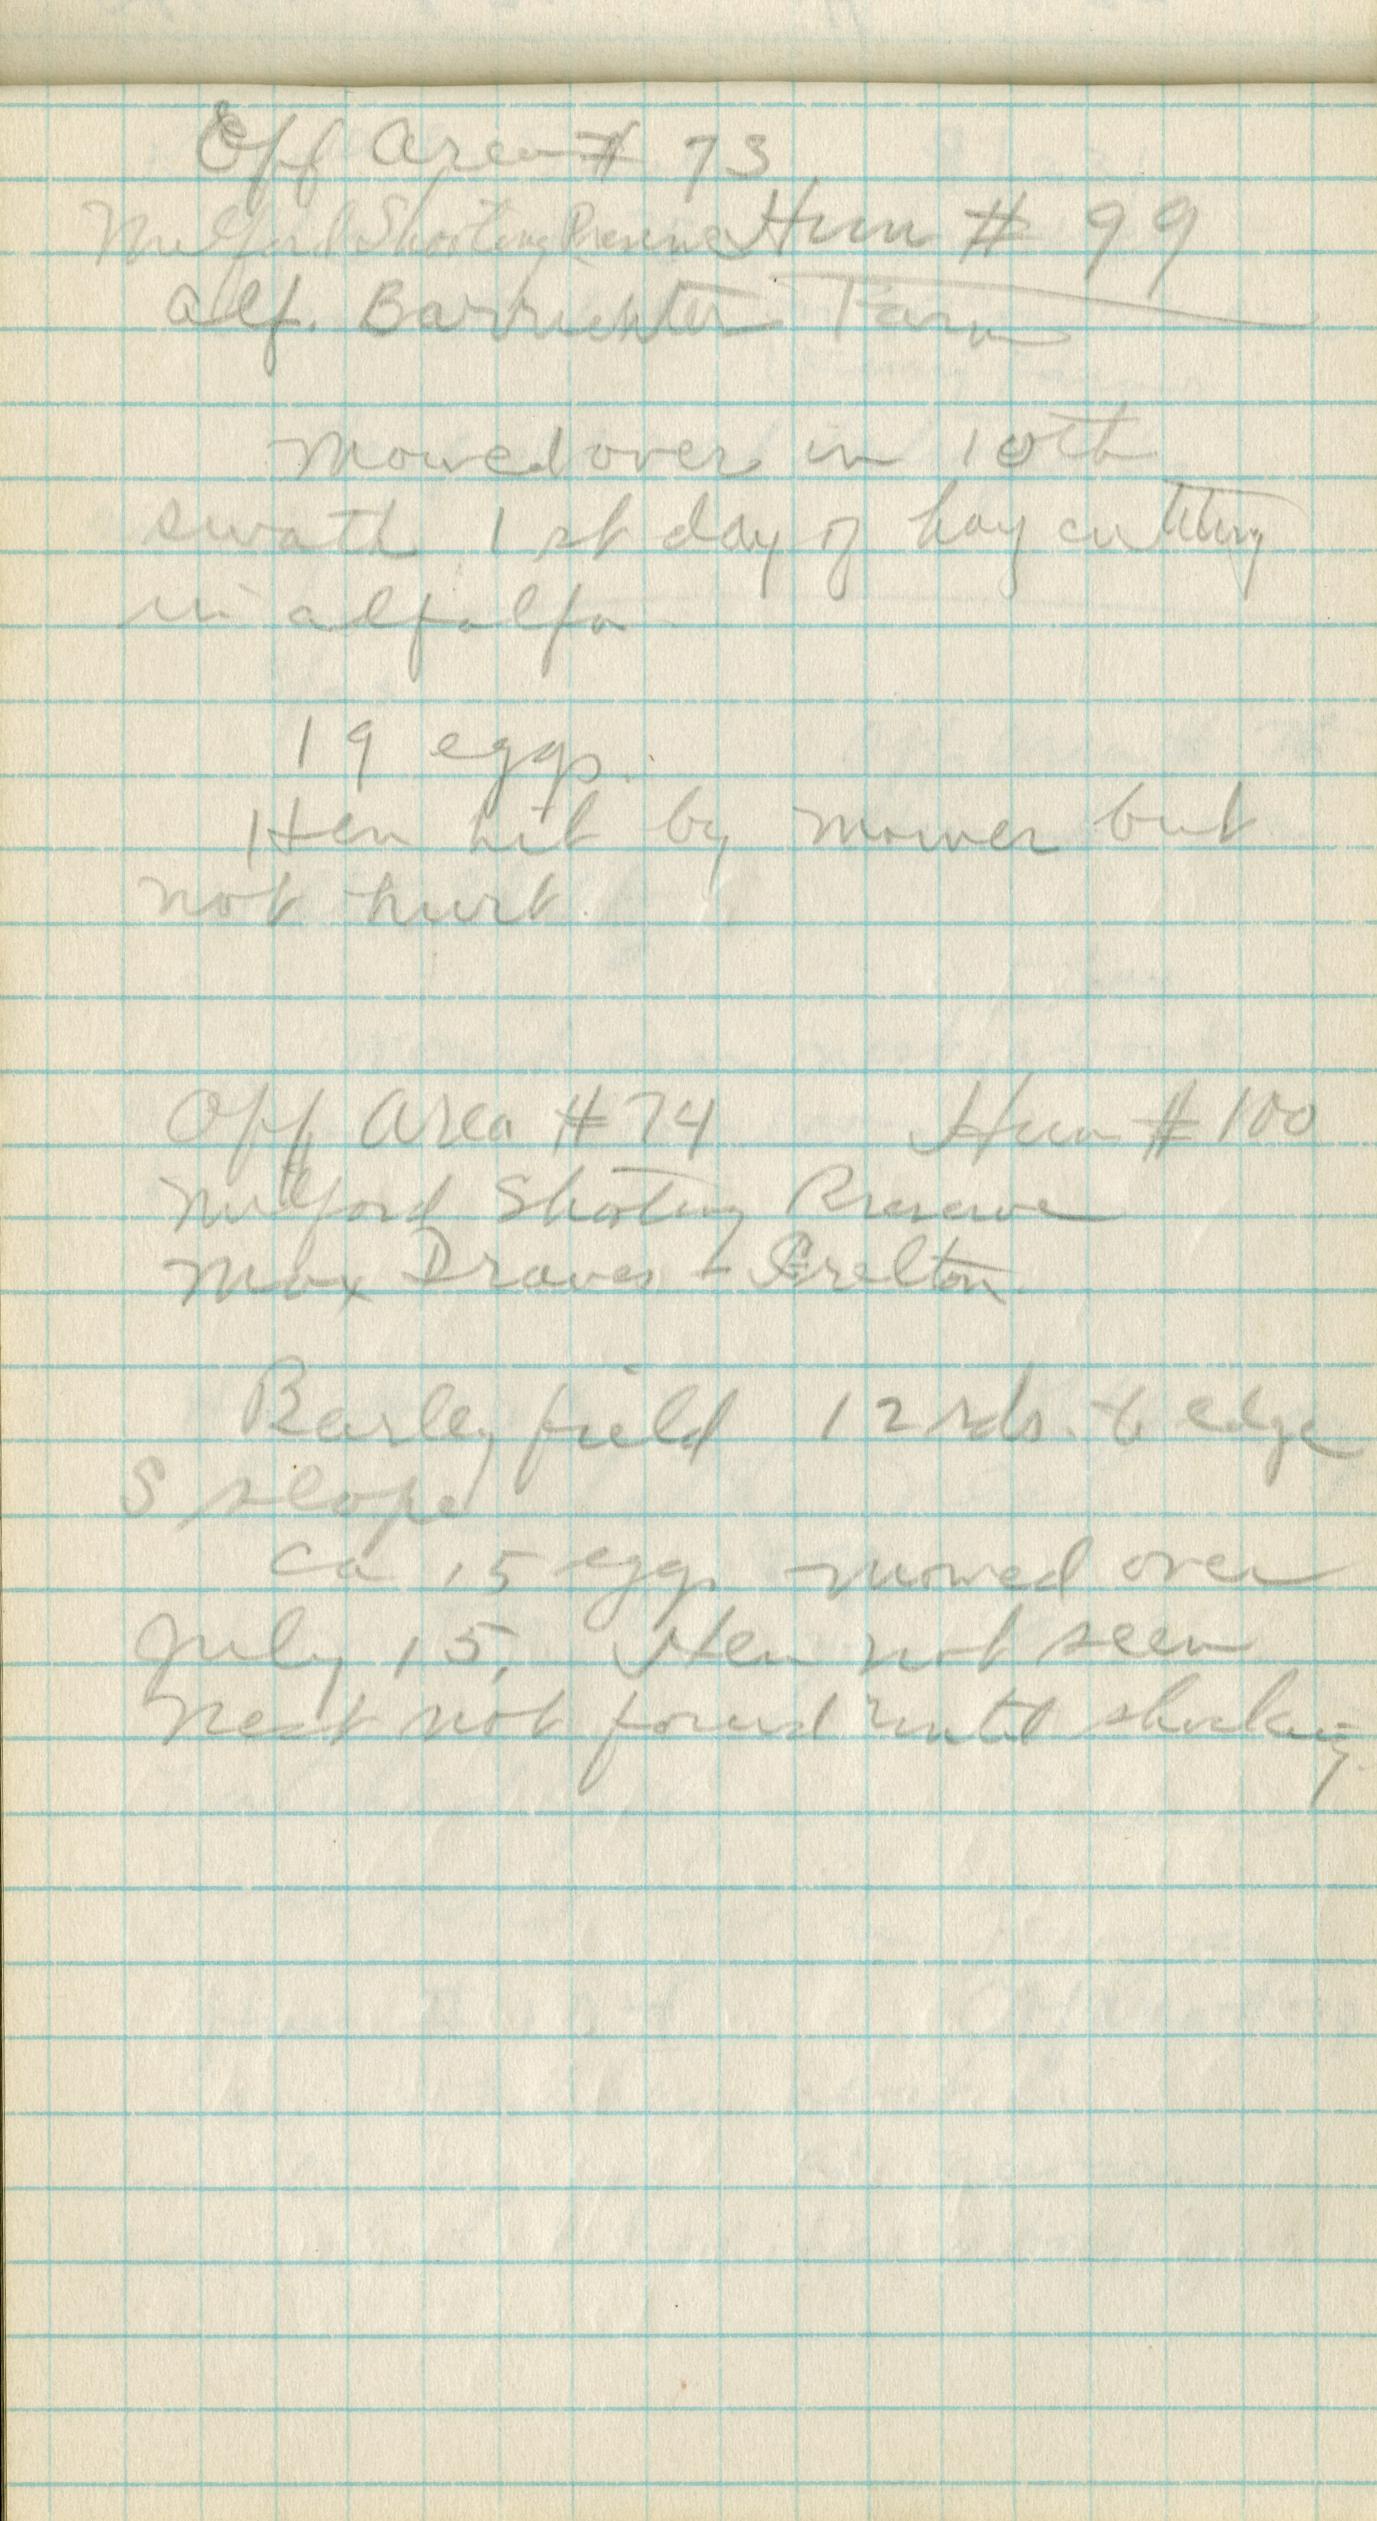 Off Area # 73
Milford Shooting Preserve Hun # 99
Alf. Farm
Mowed over in 10th
swath 1st day of hay cutting
in alfalfa
19 eggs.
Hen hit by mower but
not hurt.
Off Area # 74 Hun # 100
Milford Shooting Preserve
Max Draves -
Barley field 12 rds. to edge
S slope
ca 15 eggs mowed over
July 15, Hen not seen
Nest not found until shocking.